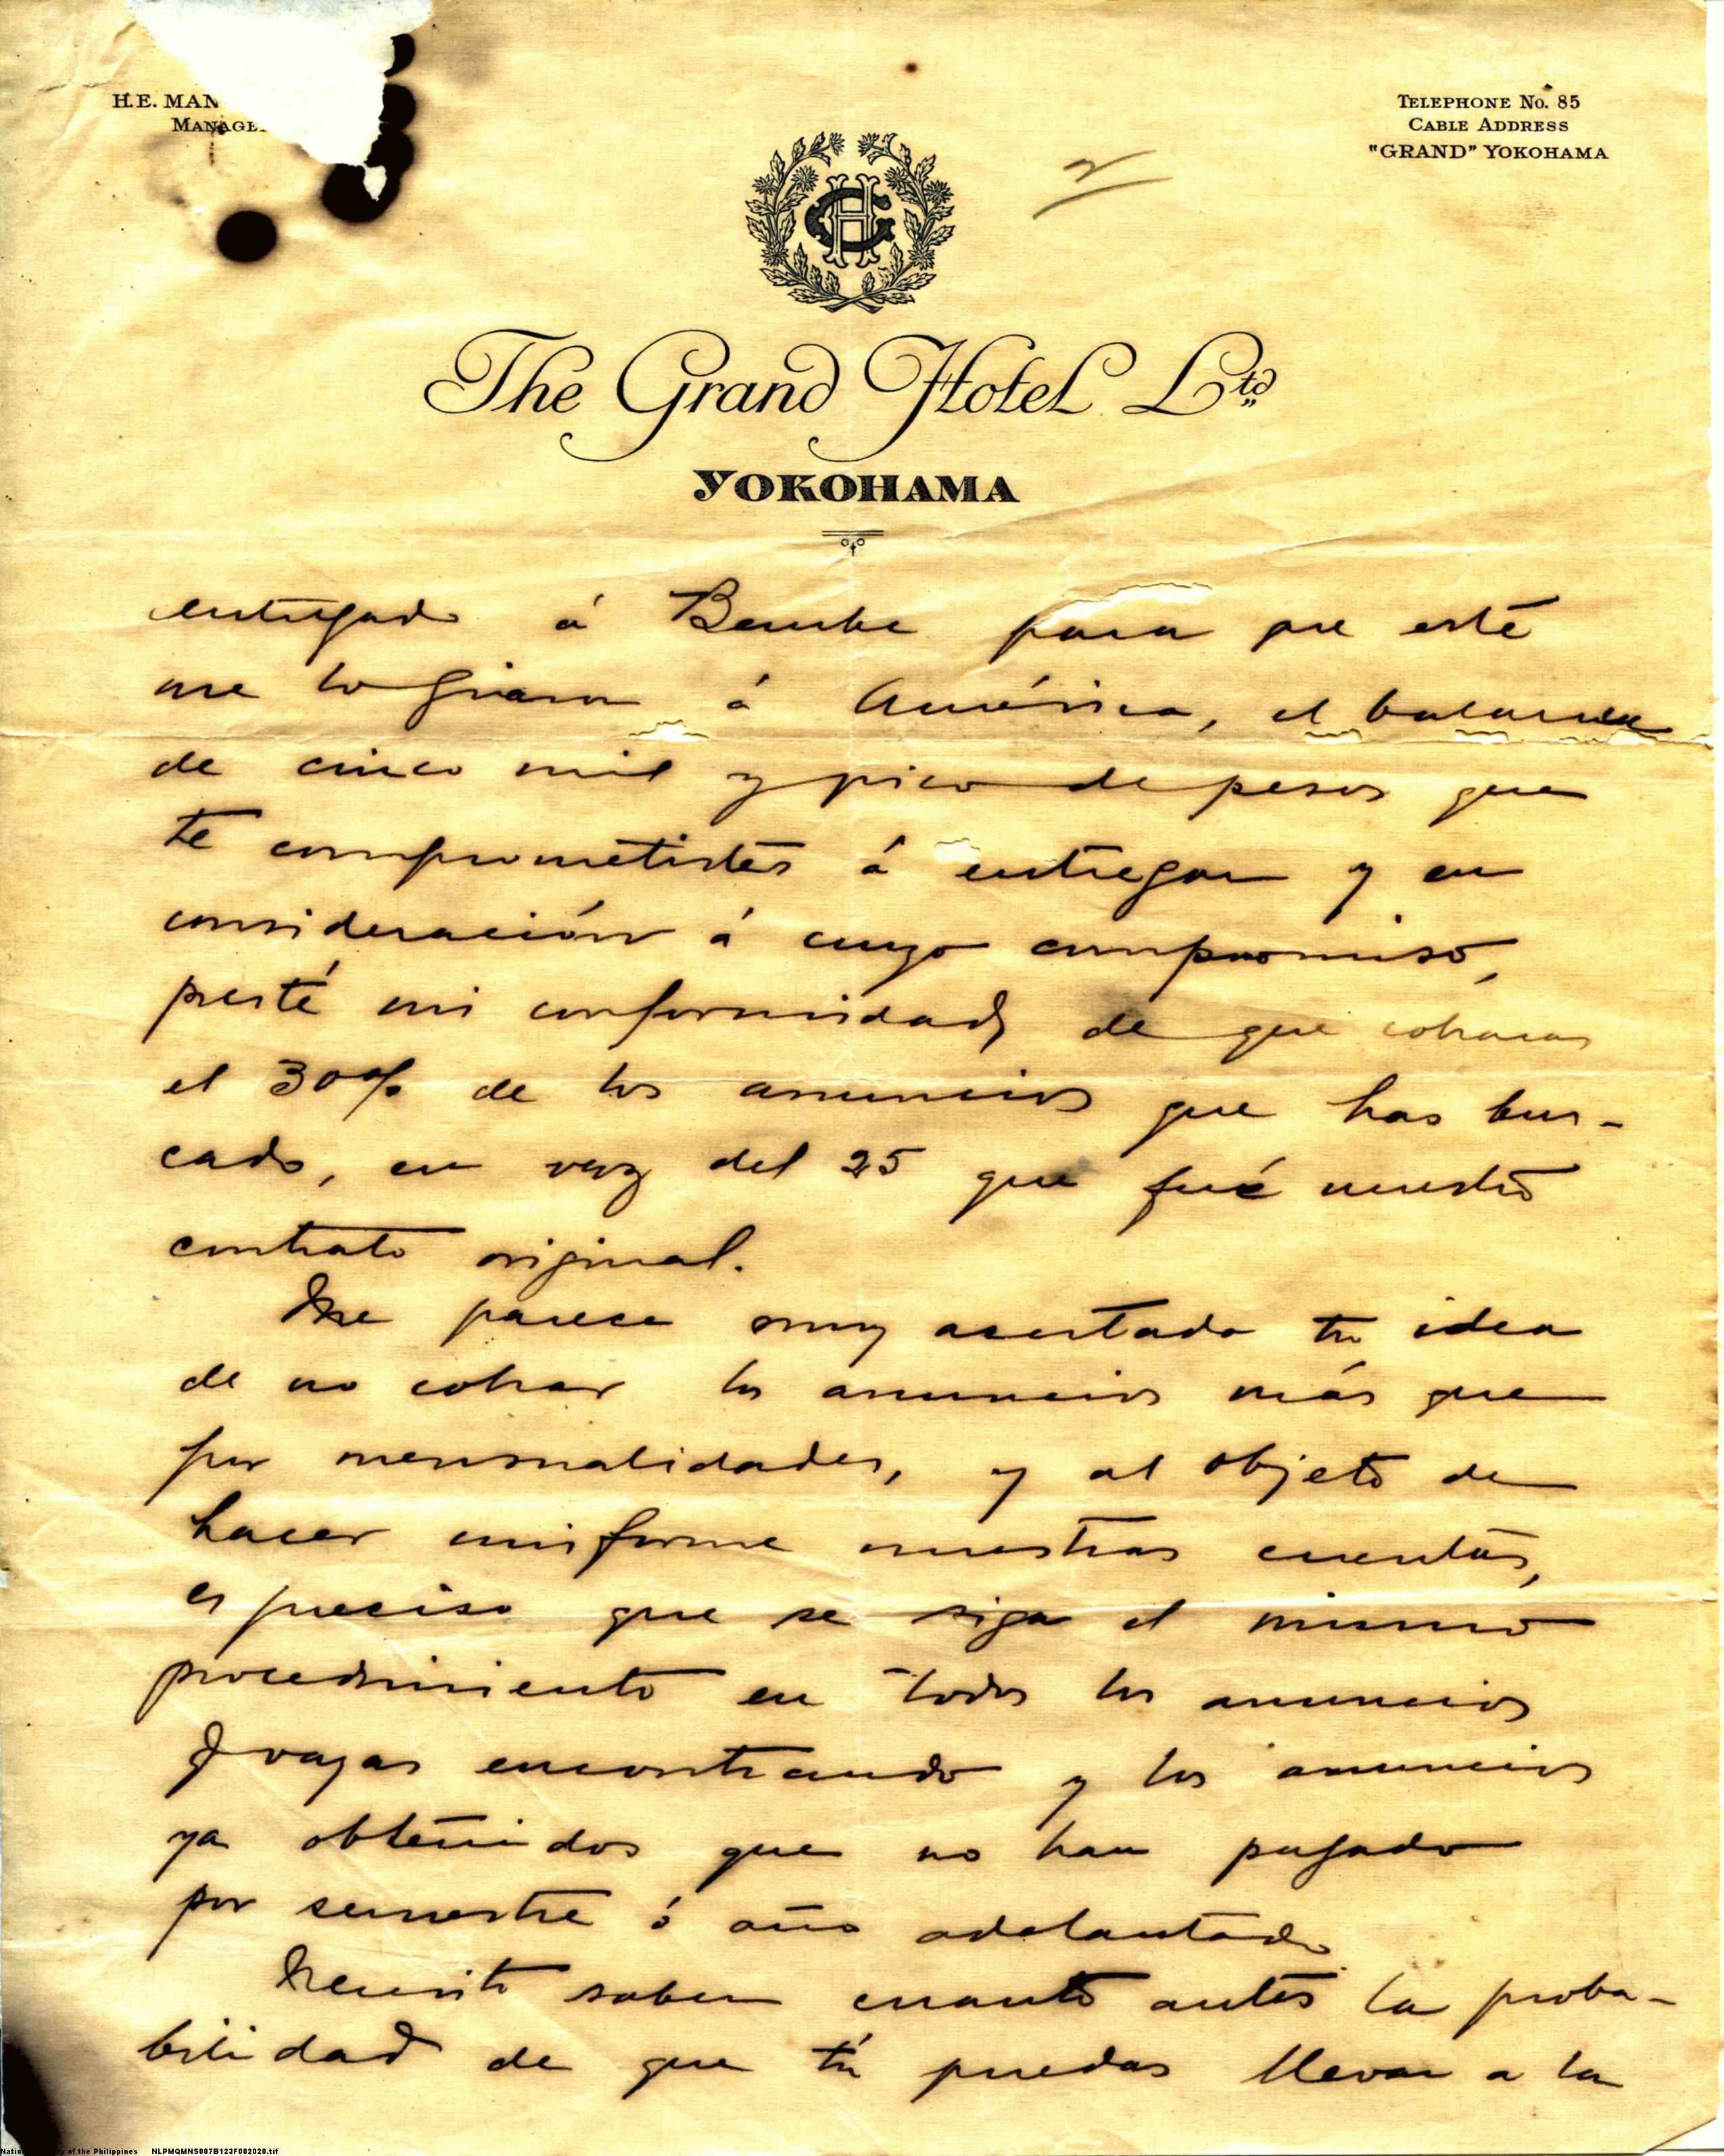 H.E. MAN
MANAGE
TELEPHONE No. 85
CABLE ADDRESS
"GRAND" YOKOHAMA
2
GH
The Grand Hotel Ltd
YOKOHAMA
entregado á para que esté
me lo girara á América, el balance
de cinco mil y pico de pesos que
te comprometistes á entregar y en
consideración á cuyo compromiso,
presté mi conformidad de que cobraras
el 30% de los anuncios que has bus-
cado, en vez del 25 que fué nuestro
contrato original.
Me parece muy acertada tu idea
de no cobrar los anuncios más que
por mensualidades, y al objeto de
hacer uniforme nuestras cuentas,
es preciso que se siga el mismo
procedimiento en todos los anuncios
q vayas encontrando y los anuncios
ya obtenidos que no han pagado
por semestre ó año adelantado
Necesito saber cuanto antes la proba-
bilidad de que tú puedas llevar a la
National Library of the Philippines NLPMQMNS007B123F002020.tif